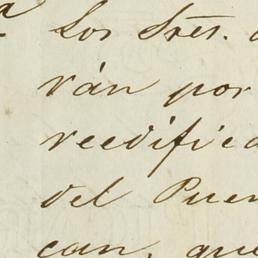 Los Sres.
ván por
reedific
del Puen
can, que